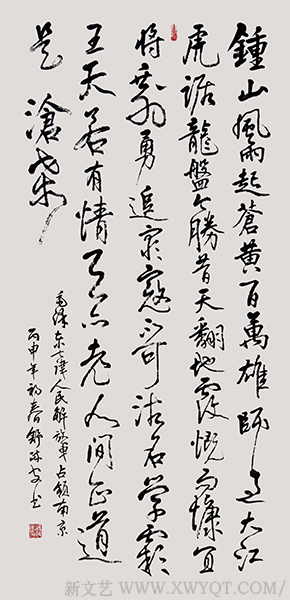 鍾山風雨起蒼黃百萬雄師過大江
虎踞龍盤今勝昔天翻地覆慨而慷宜
將剩勇追窮寇不可沽名學霸
王天若有情天亦老人間正道
是滄桑
毛泽东七律人民解放軍占領南京
丙申年初春舒书
新文艺 WWW.XWYQT.COM/